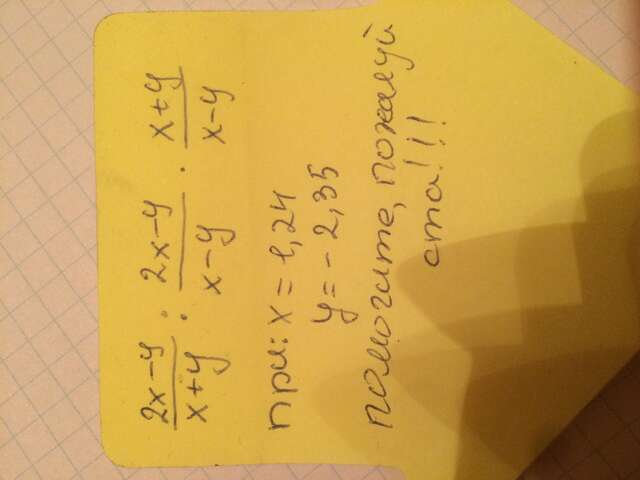 2x-y/x+y : 2x-y/x-y · x+y/x-y
при: x = 1,24
y = - 2,35
помогите, пожалуй
ста!!!